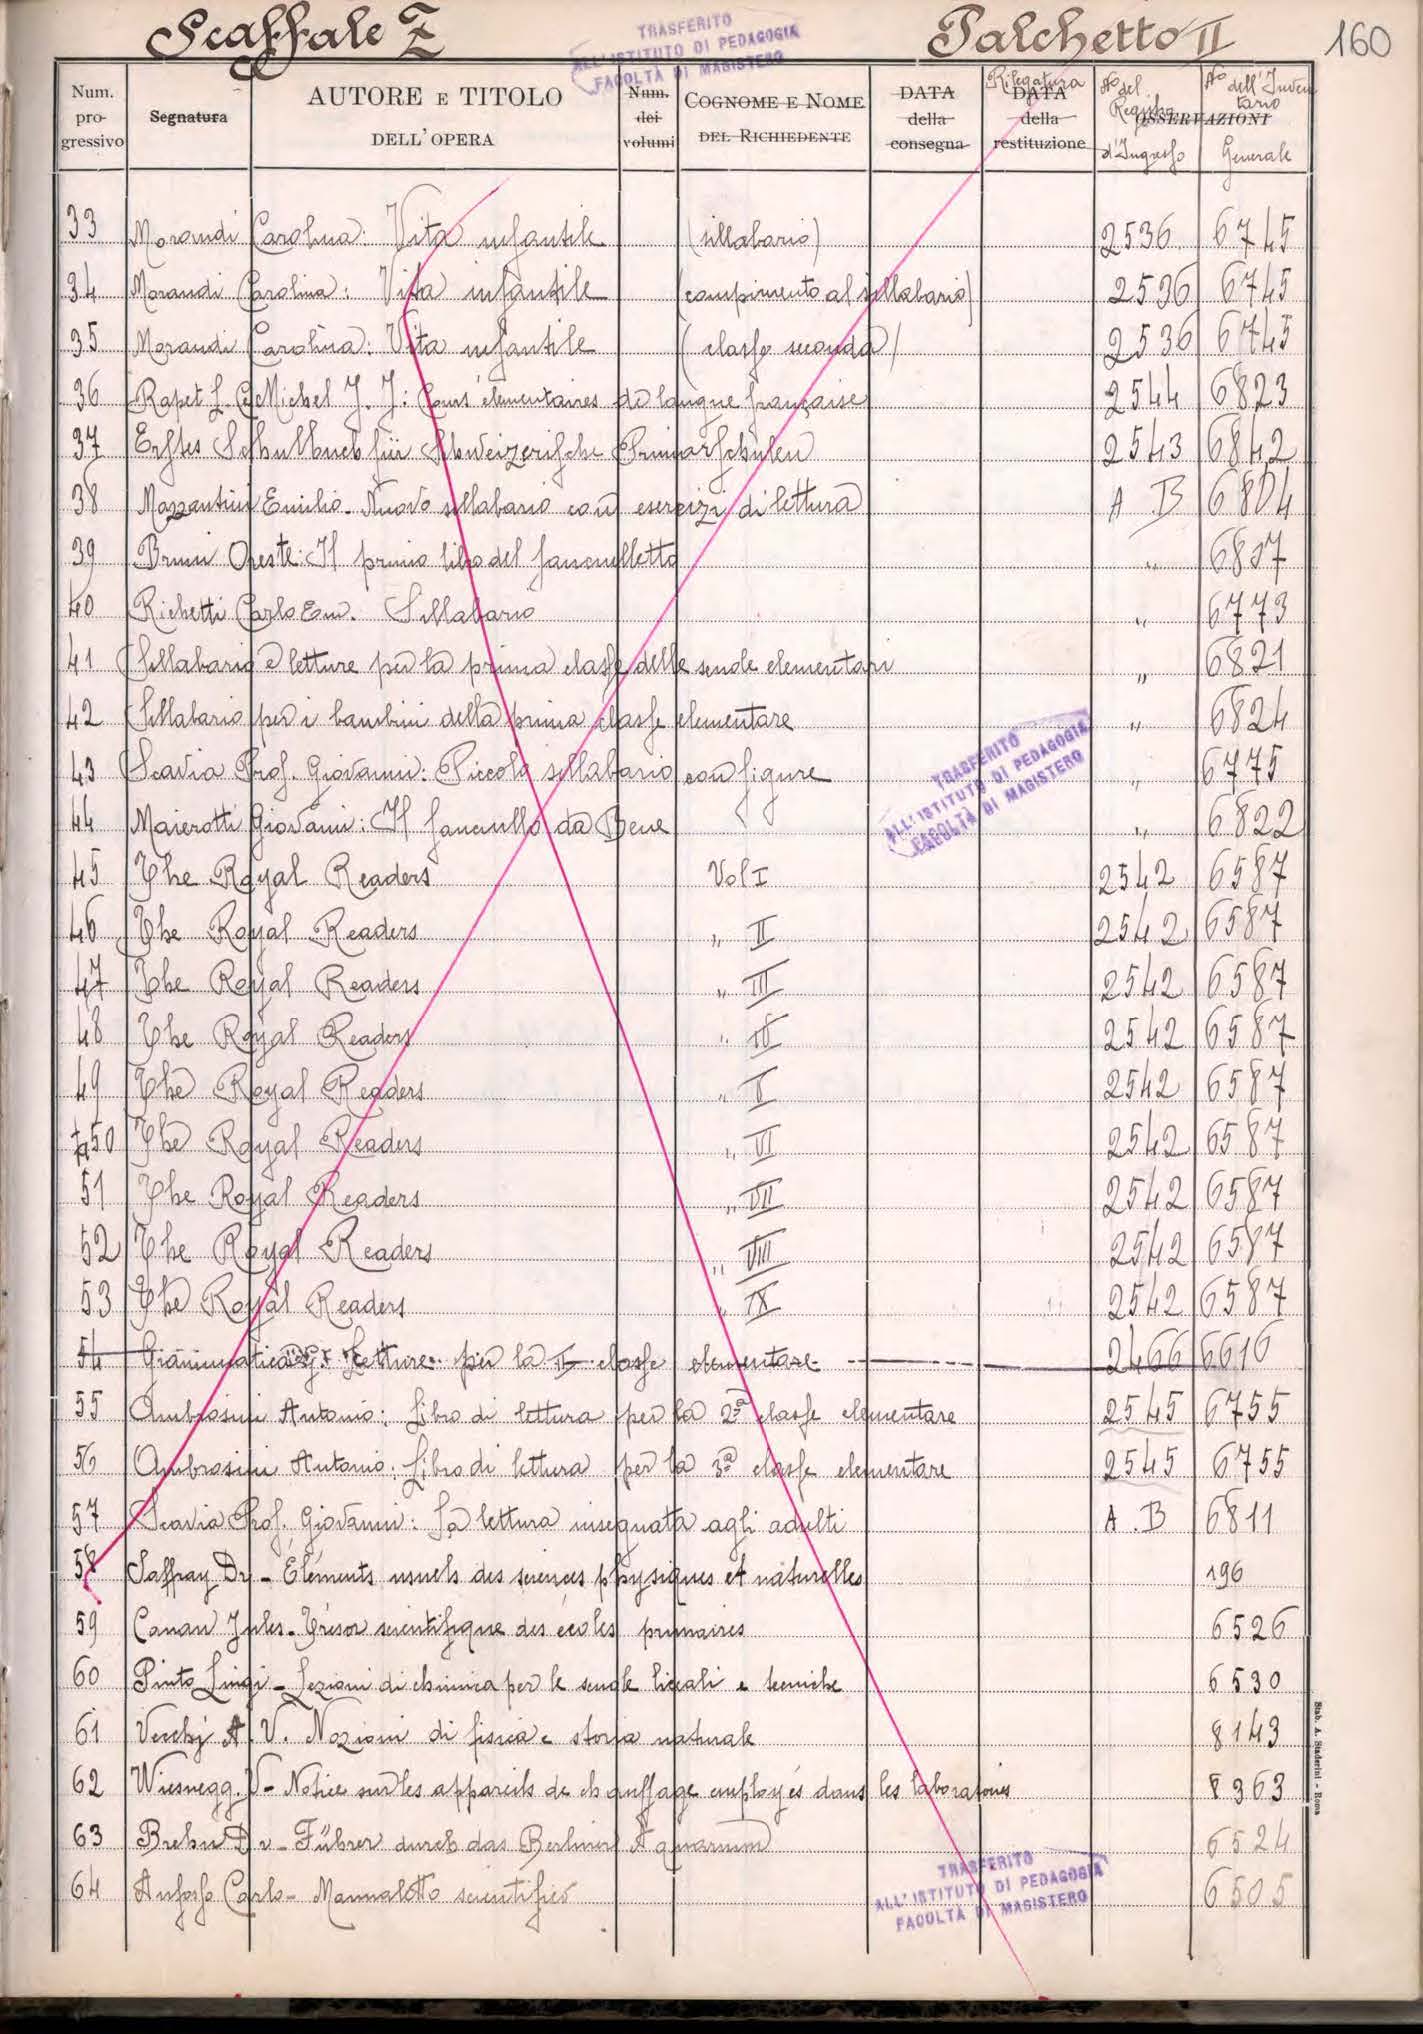 Scaffale Z Palchetto II 160
TRASFERITO
ALL'ISTITUTO DI PEDAGOGIA
FACOLTÀ DI MAGISTERO
Num. progressivo Segnatura AUTORE E TITOLO DELL'OPERA Num. dei volumi COGNOME E NOME DEL RICHIEDENTE DATA della consegna Rilegatura DATA della restituzione OSSERVAZIONI No del Registro d'Ingresso No dell'Inventario Generale
33 Morandi Carolina: Vita infantile (sillabario) 2536 6745
34 Morandi Carolina: Vita infantile (compimento al sillabario) 2536 6745
35 Morandi Carolina: Vita infantile (classe seconda) 2536 6745
36 Rapet L. C. Michel J. J.: Cours élementaires de langue française 2544 6823
37 Erstes Schulbuch für Schweizerische Primarschulen 2543 6842
38 Mazzantini Emilio. Nuovo sillabario con esercizi di lettura A. B 6804
39 Bruni Oreste: Il primo libro del fanciulletto " 6807
40 Richetti Carlo Em. Sillabario " 6773
41 Sillabario e letture per la prima classe delle scuole elementari " 6821
42 Sillabario per i bambini della prima classe elementare " 6824
43 Scavia Prof. Giovanni: Piccolo sillabario con figure " 6775
44 Maierotti Giovanni: Il fanciullo da Bene " 6822
TRASFERITO
ALL'ISTITUTO DI PEDAGOGIA
FACOLTÀ DI MAGISTERO
45 The Royal Readers Vol I 2542 6587
46 The Royal Readers " II 2542 6587
47 The Royal Readers " III 2542 6587
48 The Royal Readers " IV 2542 6587
49 The Royal Readers " V 2542 6587
50 The Royal Readers " VI 2542 6587
51 The Royal Readers " VII 2542 6587
52 The Royal Readers " VIII 2542 6587
53 The Royal Readers " IX 2542 6587
54 Grammatica Letture per la II classe elementare 2466 6616
55 Ambrosini Antonio: Libro di lettura per la 2ª classe elementare 2545 6755
56 Ambrosini Antonio: Libro di lettura per la 3ª classe elementare 2545 6755
57 Scavia Prof. Giovanni: La lettura insegnata agli adulti A. B 6811
58 Saffray Dr - Éléments usuels des sciences physiques et naturelles 196
59 Canan Jules - Trésor scientifique des écoles primaires 6526
60 Pinto Luigi - Lezioni di chimica per le scuole liceali e tecniche 6530
61 Vecchj A. V. Nozioni di fisica e storia naturale 8143
62 Wiesnegg. V - Notice sur les appareils de chauffage employés dans les laboratoires 8363
63 Brehm Dr - Führer durch das Berliner Aquarium 6524
64 Anfosso Carlo - Mannalotto scientifico 6505
TRASFERITO
ALL'ISTITUTO DI PEDAGOGIA
FACOLTA DI MAGISTERO
Stab. A. Staderini - Roma